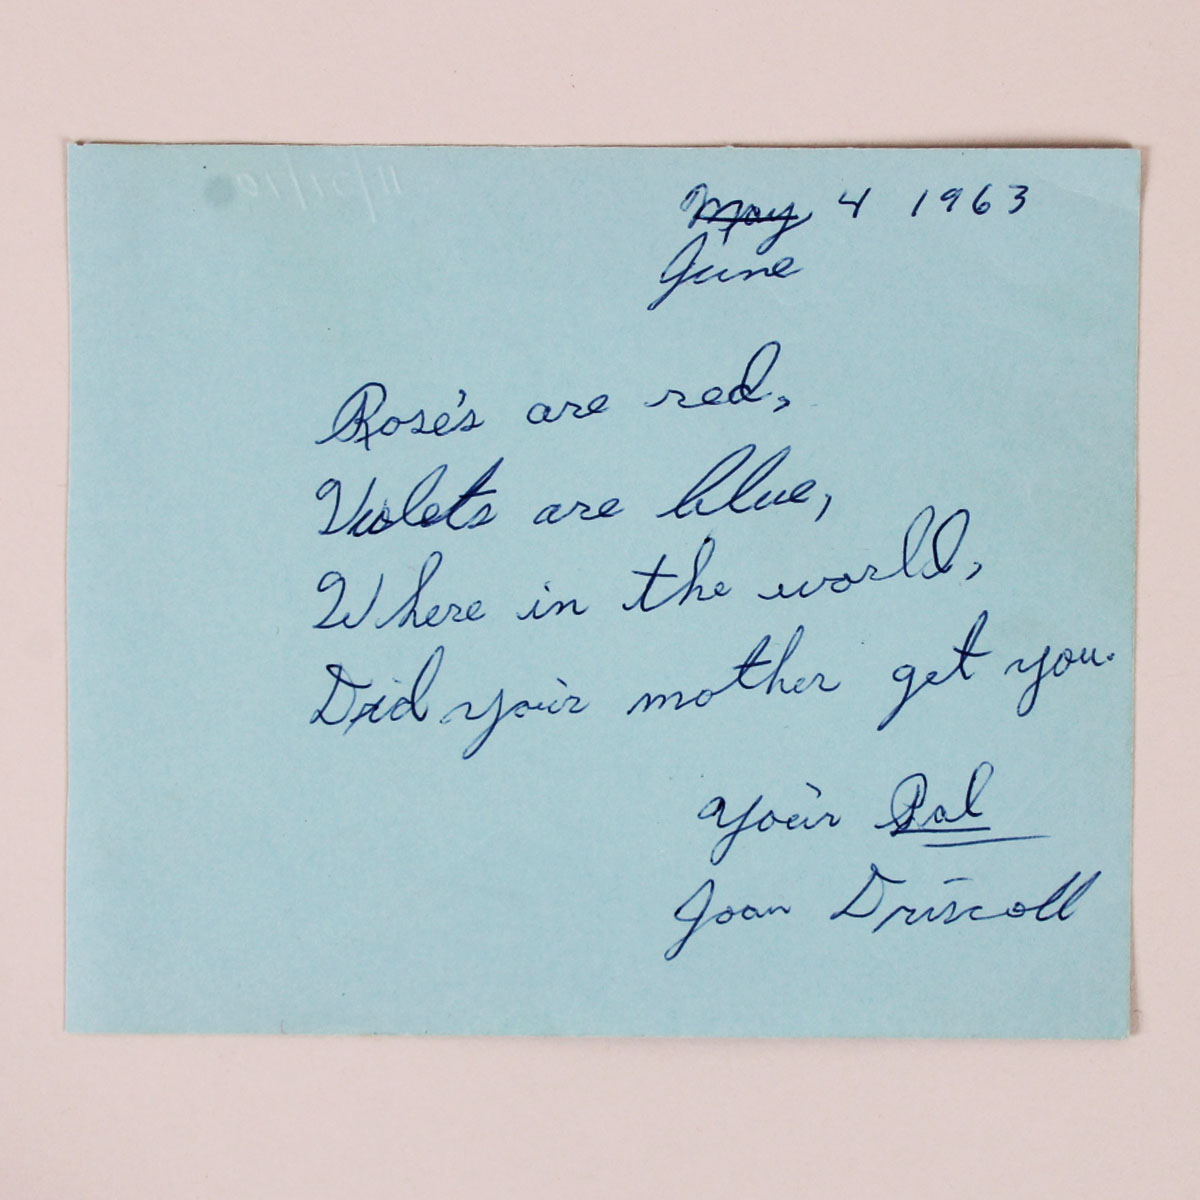 May 4 1963
June
Rose's are red,
Violets are blue,
Where in the world,
Did your mother get you.
Your Pal
Joan Driscoll